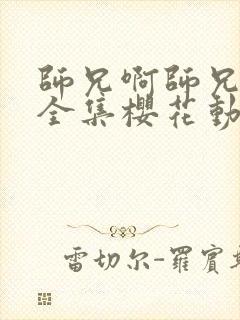 師兄啊師兄
全集櫻花動
雷切尔-羅賓